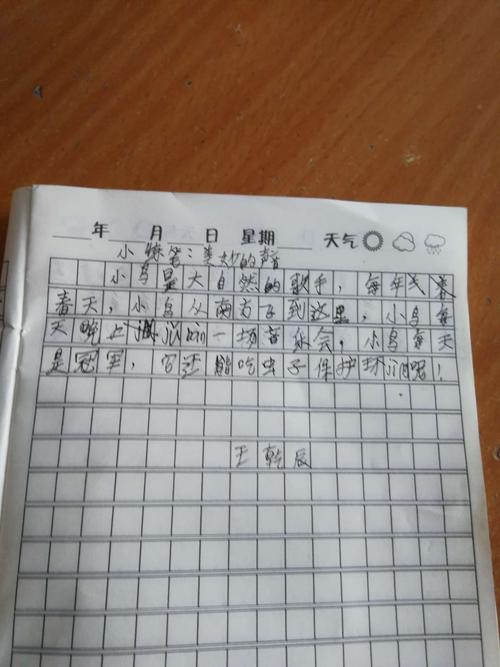 年 月 日 星期 天气
小练笔:美妙的声音
小鸟是大自然的歌手,每年春
春天,小鸟从南方飞到这里,小鸟每
天晚上 一场音乐会,小鸟每天
是冠军,它还能吃虫子保护环 !
王乾辰